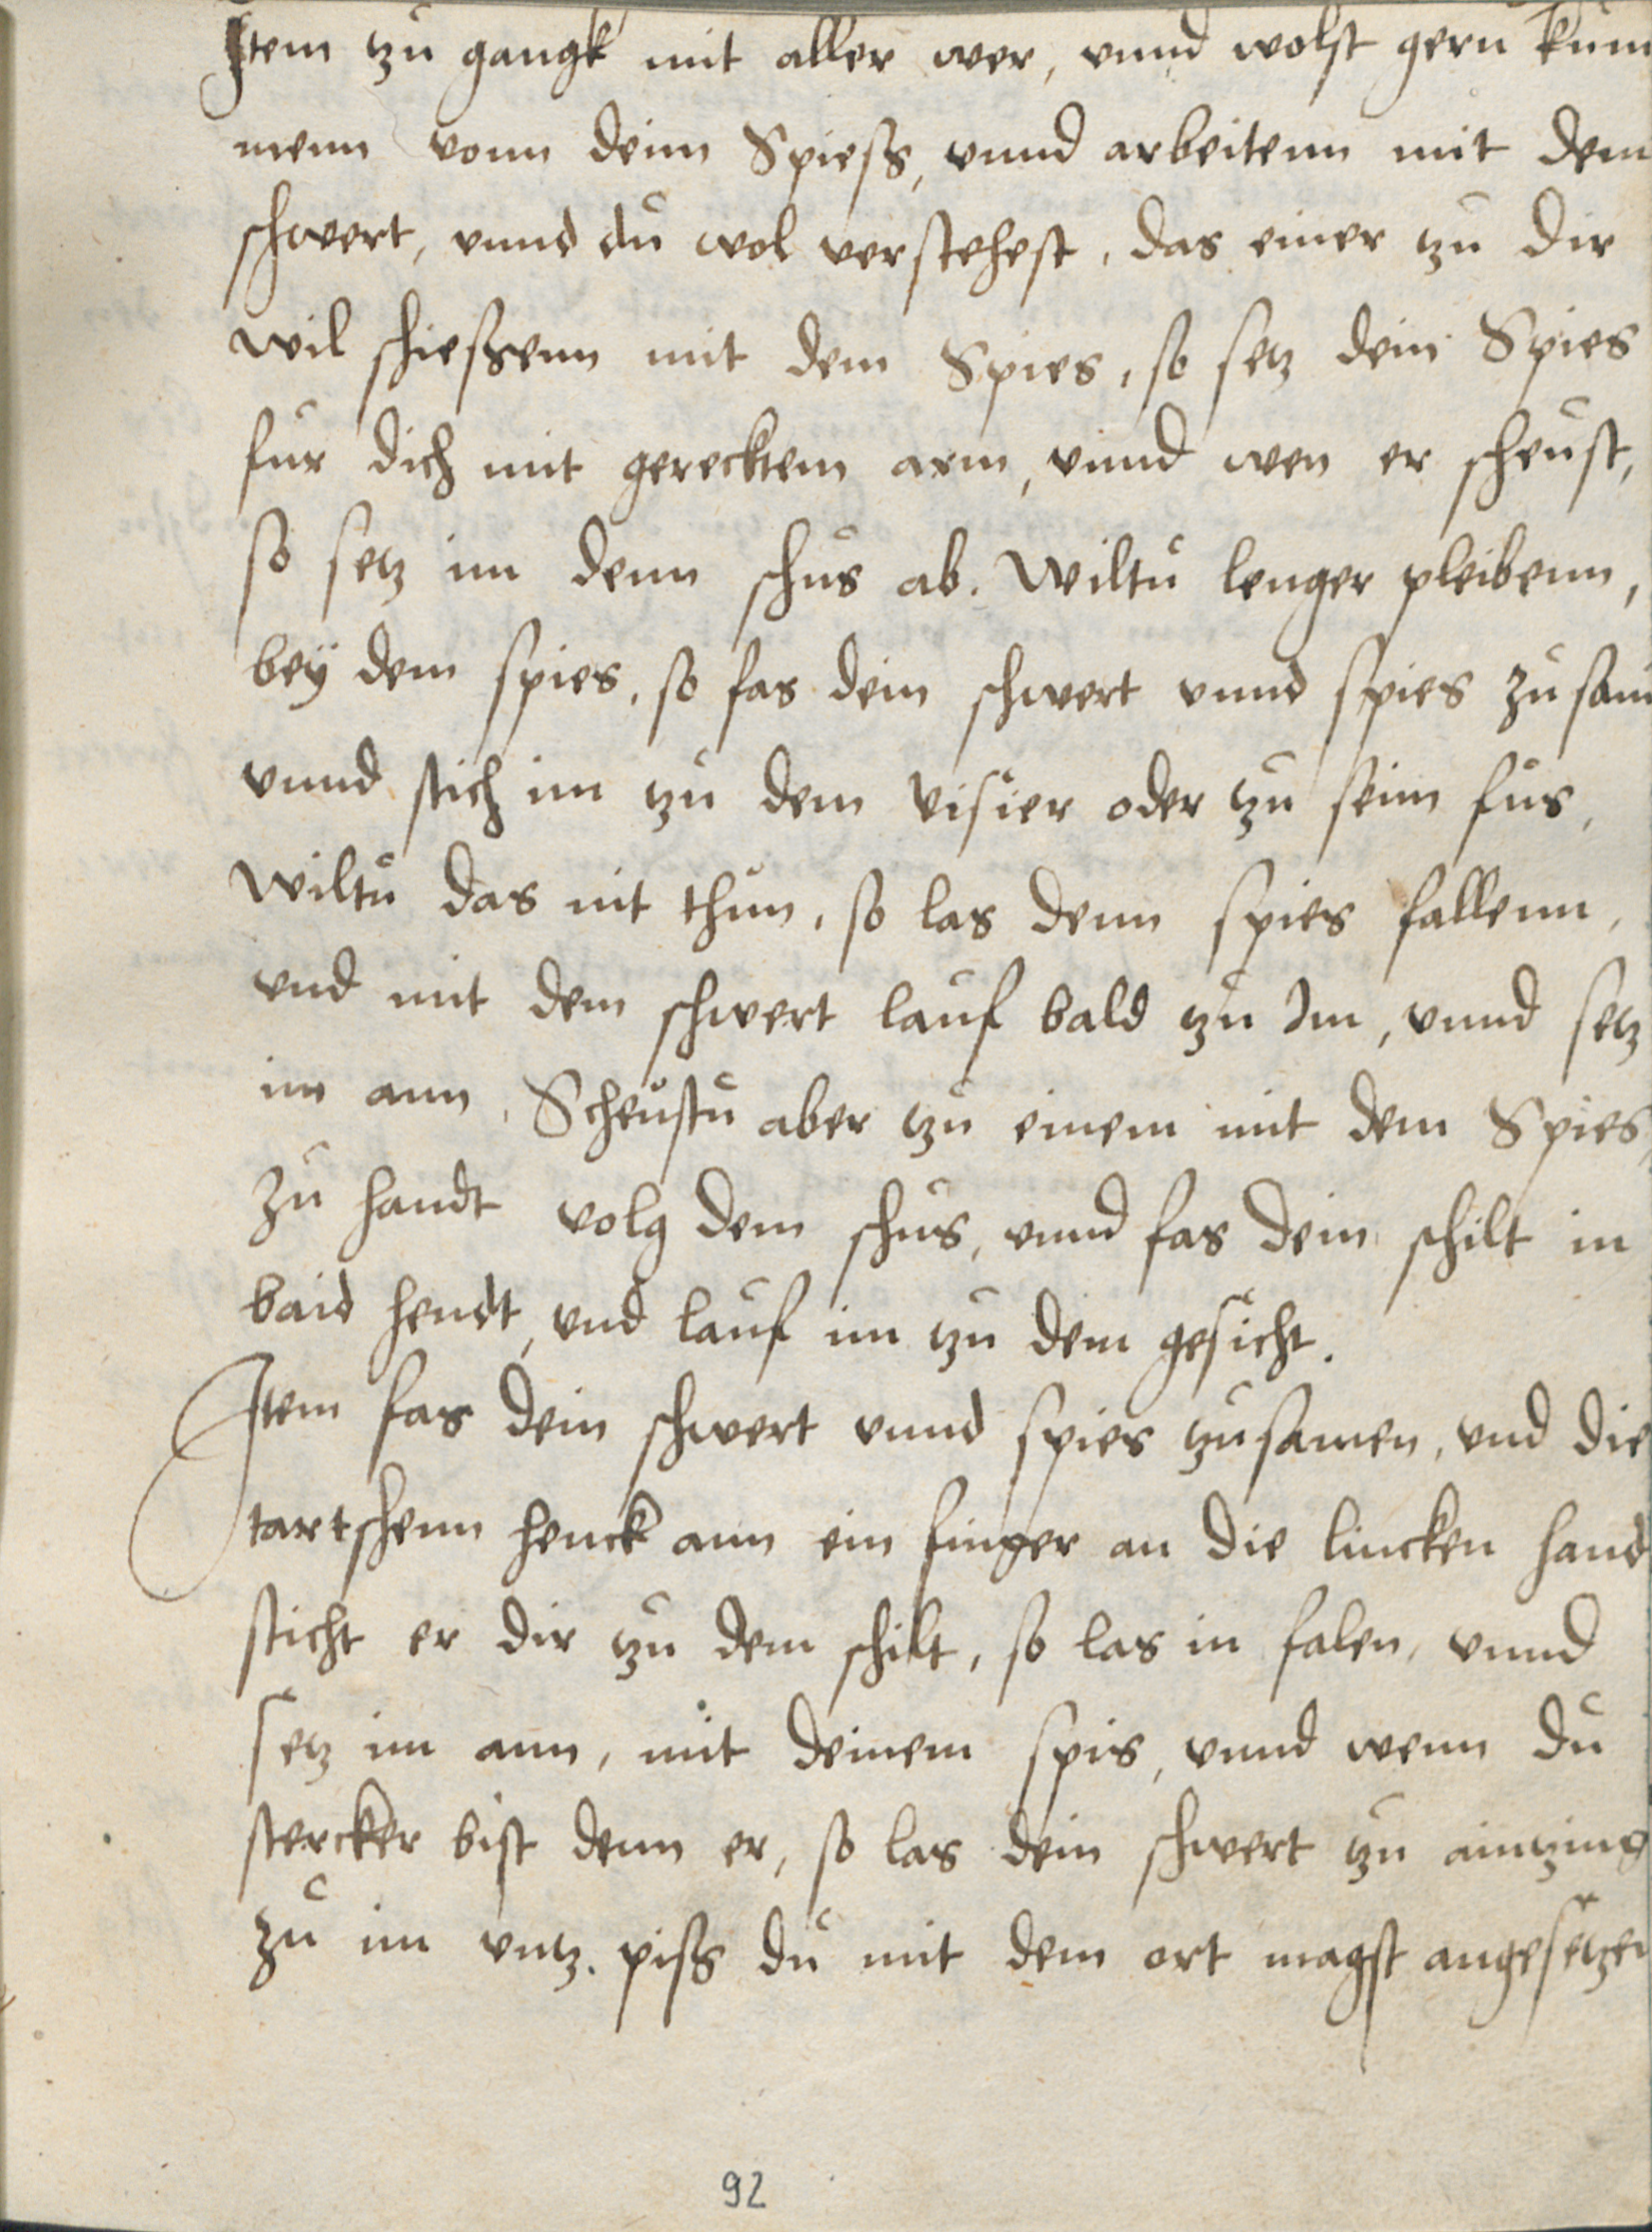 Item tzu gangk mit aller wer, vnnd wolst gern kum
menn vonn deinn Spiess, vnnd arbeitenn mit dem
schwert, vnnd du wol verstehest, das einer tzu dir
wil schiessenn mit dem Spies, so setz dein Spies
fur dich mit gerecktem arm, vnnd wen er scheust,
so setz im denn schus ab. Wiltu lenger pleibenn,
bey dem spies, so fas dein schwert vnnd spies zusam
vnnd stich im tzu dem visier oder tzu seim fus,
Wiltu das nit thun, so las denn spies fallenn,
vnd mit dem schwert lauf bald tzu Im, vnnd setz
im ann, Scheustu aber tzu einem mit dem Spies,
zu handt volg dem schus, vnnd fas dein schilt in
baid hendt, vnd lauf im tzu dem gesicht.
Item fas dein schwert vnnd spies tzusamen, vnd die
tartschenn henck ann ein finger an die lincken hand
sticht er dir tzu dem schilt, so las in falen, vnnd
setz im ann, mit deinem spis, vnnd wenn du
stercker bist denn er, so las dein schwert tzu aintzing
zu im vntz. piss du mit dem ort magst angesetzen
92